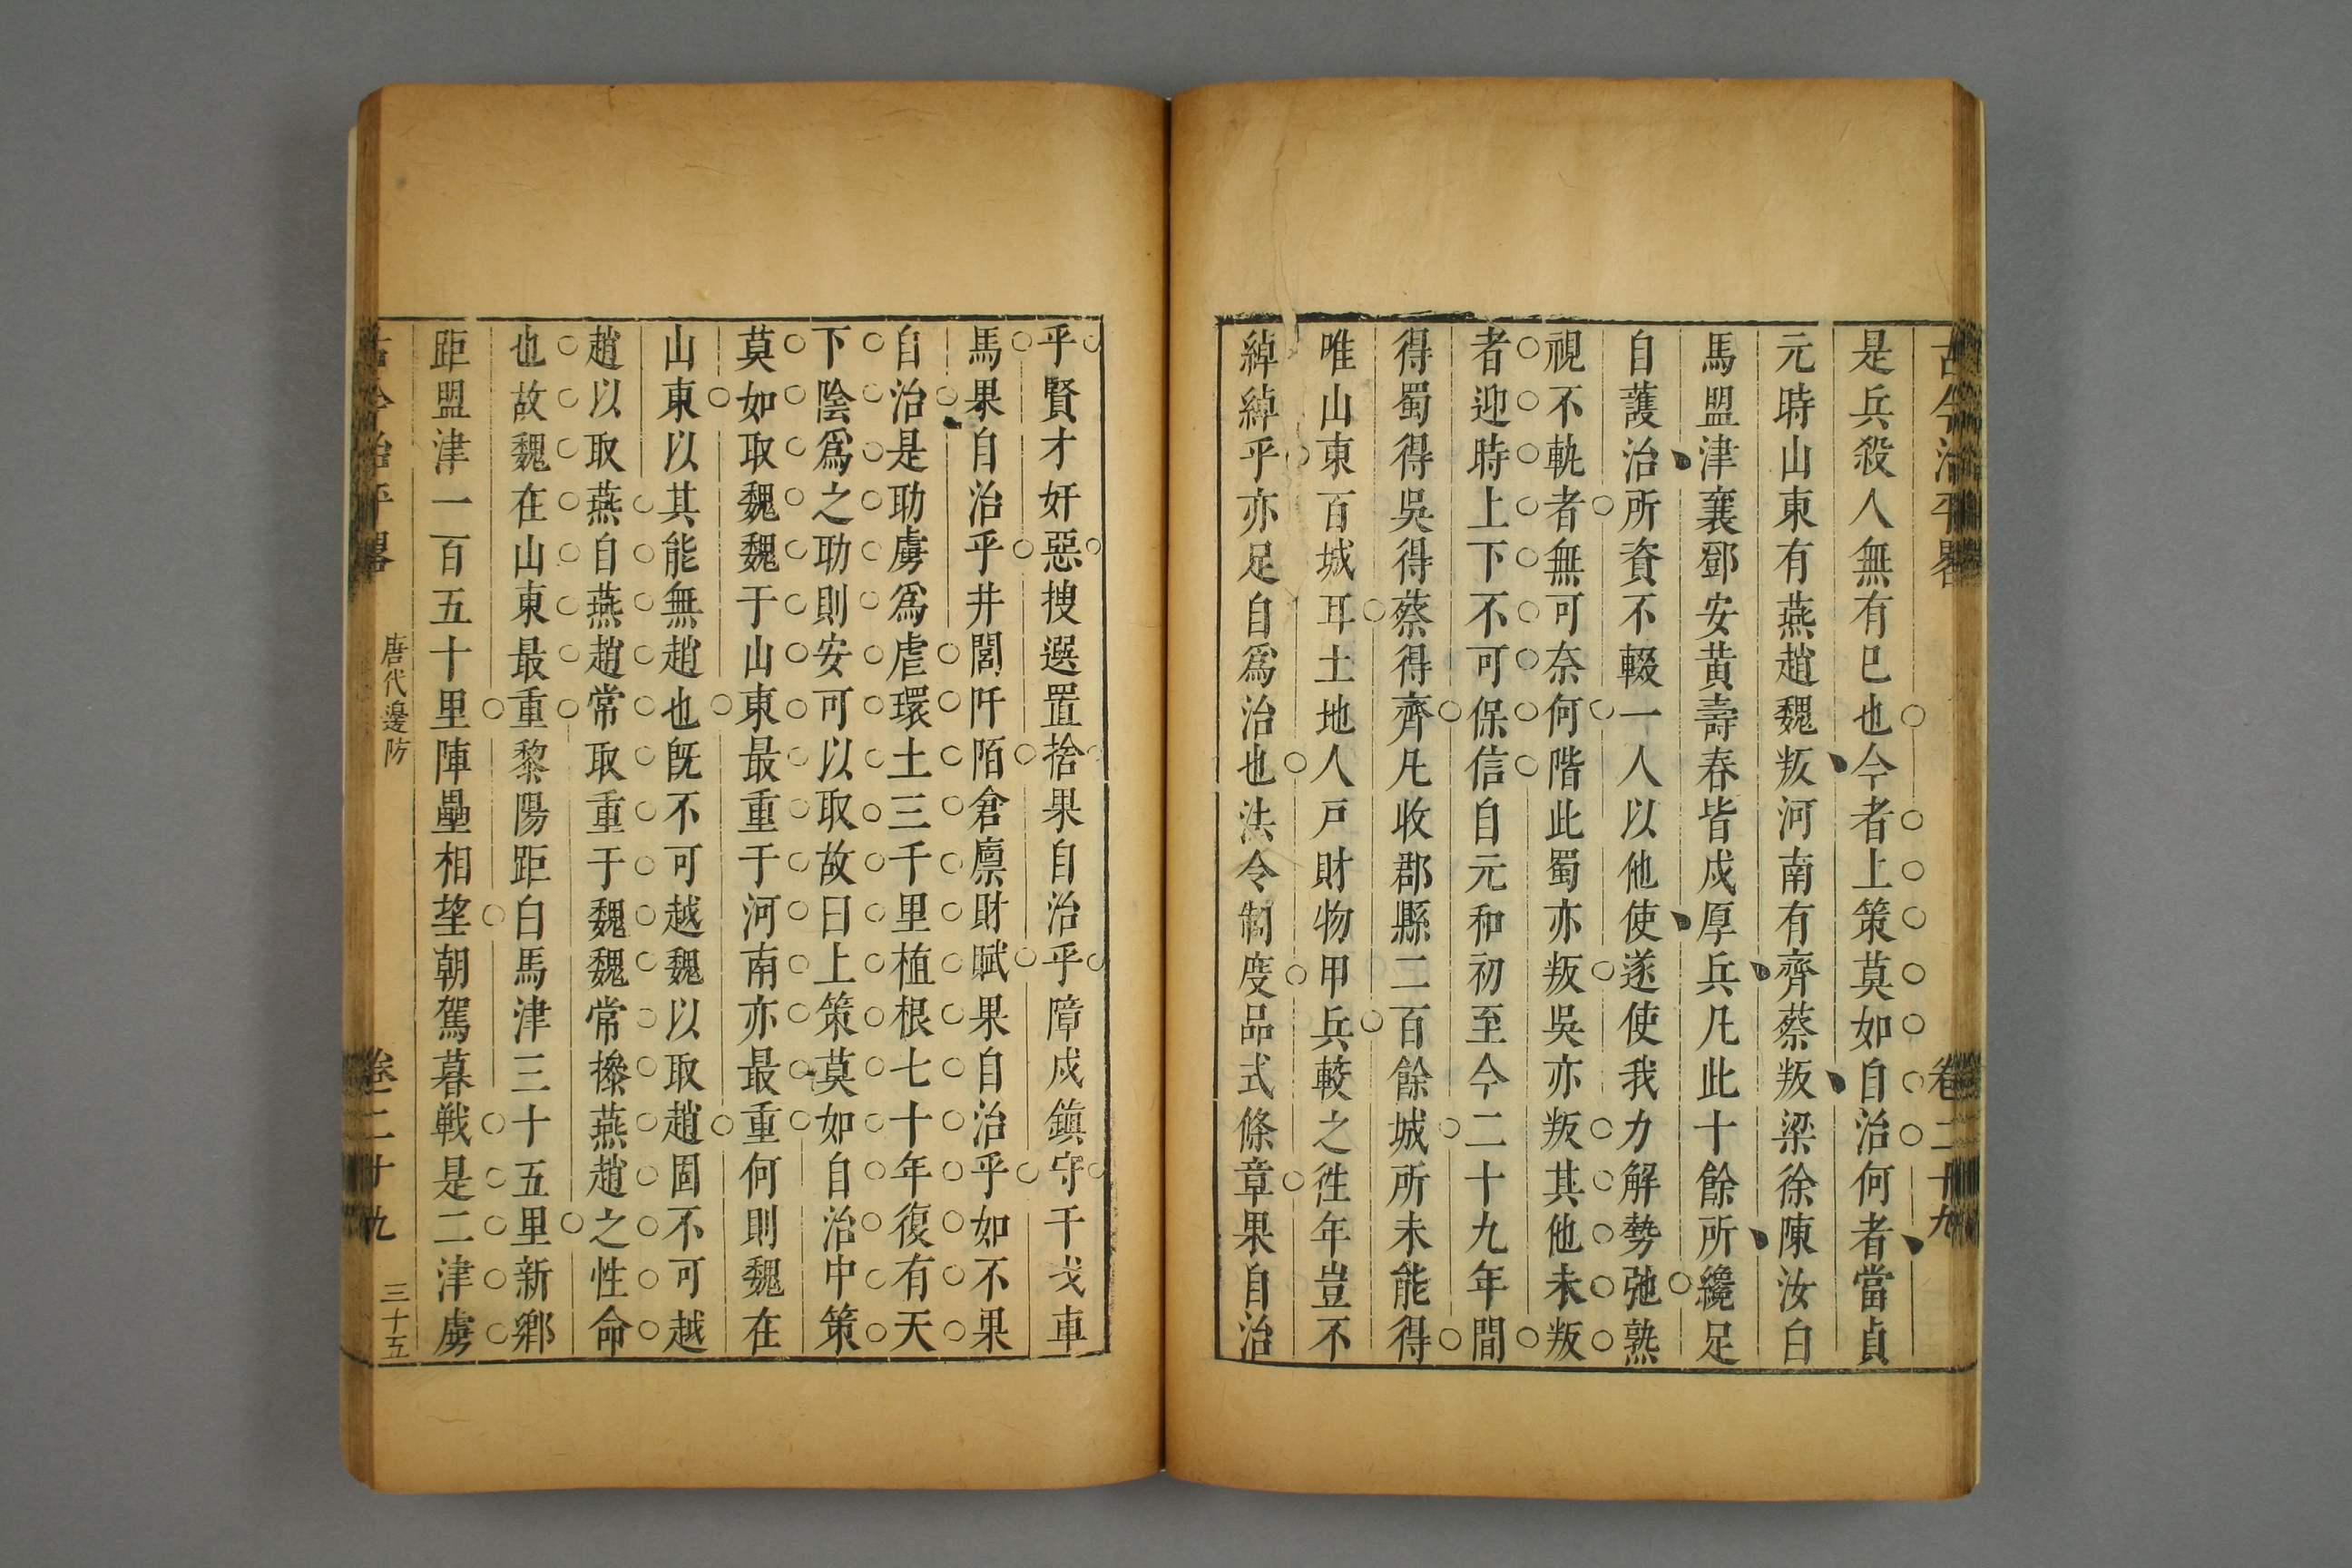 古今治平畧 卷二十九
是兵殺人無有已也今者上策莫如自治何者當貞
元時山東有燕趙魏叛河南有齊蔡叛梁徐陳汝白
馬盟津襄鄧安黃壽春皆戍厚兵凡此十餘所纔足
自護治所資不輟一人以他使遂使我力解勢弛熟
視不軌者無可奈何階此蜀亦叛吳亦叛其他未叛
者迎時上下不可保信自元和初至今二十九年間
得蜀得吳得蔡得齊凡收郡縣二百餘城所未能得
唯山東百城耳土地人戸財物甲兵較之徃年豈不
綽綽乎亦足自爲治也法令制度品式條章果自治
乎賢才奸惡搜選置捨果自治乎障戍鎮守干戈車
馬果自治乎井閭阡陌倉廪財賦果自治乎如不果
自治是助虜爲虐環土三千里植根七十年復有天
下陰爲之助則安可以取故曰上策莫如自治中策
莫如取魏魏于山東最重于河南亦最重何則魏在
山東以其能無趙也旣不可越魏以取趙固不可越
趙以取燕自燕趙常取重于魏魏常摻燕趙之性命
也故魏在山東最重黎陽距白馬津三十五里新鄉
距盟津一百五十里陣壘相望朝駕暮戰是二津虜
古今治平畧 唐代邊防 卷二十九 三十五